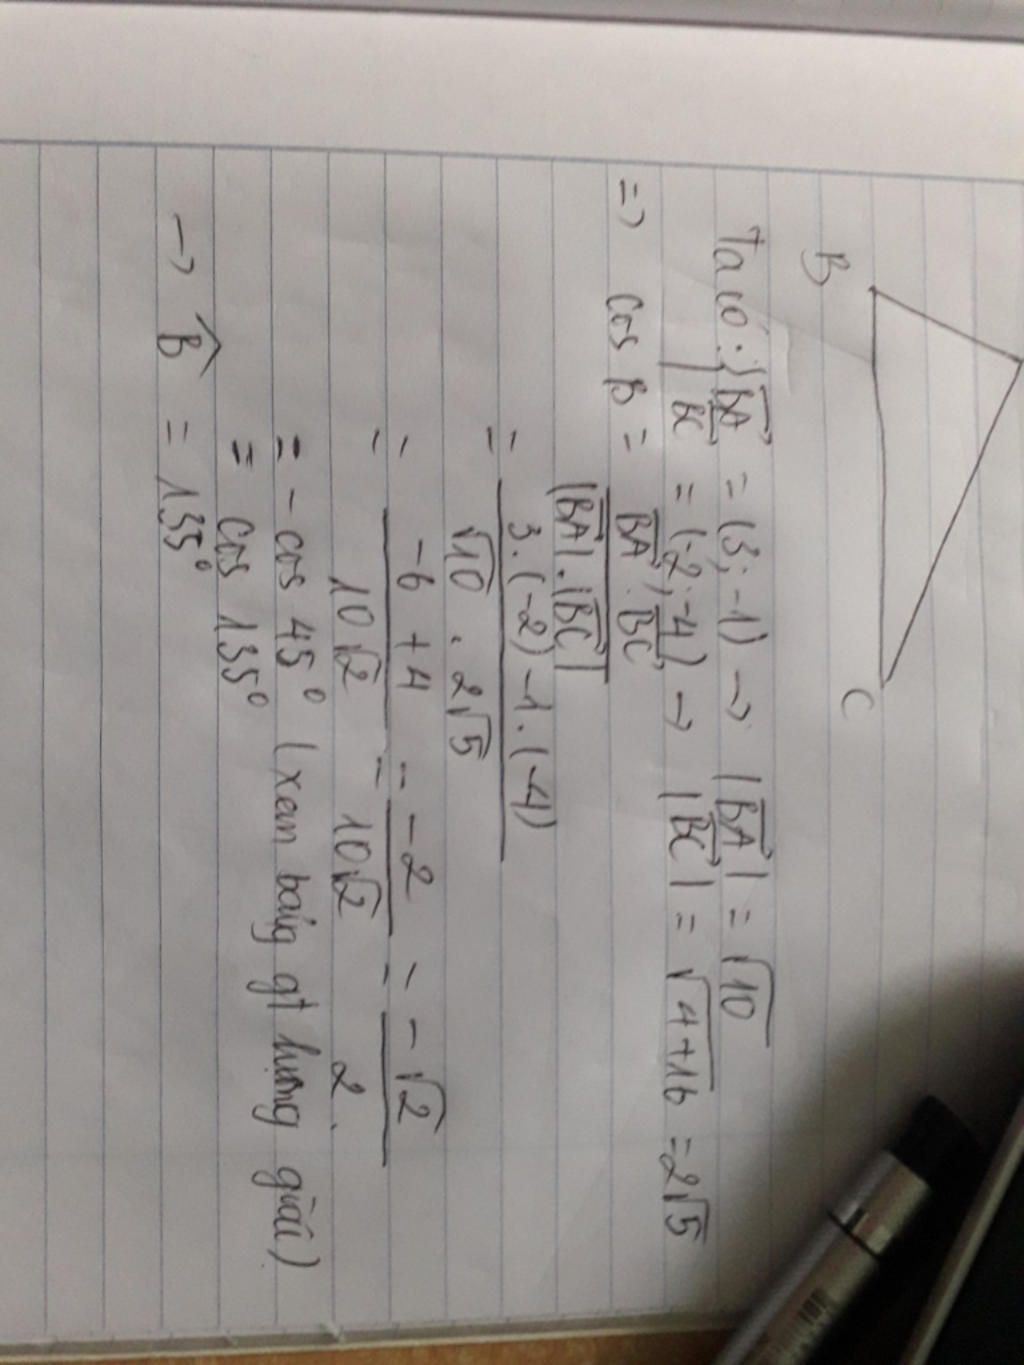 B
C
Ta có: { BA⃗ = (3; -1) → |BA⃗| = √10
BC⃗ = (-2; -4) → |BC⃗| = √4+16 = 2√5
=> cos B = BA⃗ . BC⃗ / |BA⃗| . |BC⃗|
= 3. (-2) - 1. (-4) / √10 . 2√5
= -6 + 4 / 10√2 = -2 / 10√2 = -√2 / 2.
= - cos 45° (xem bảng gt lượng giác)
= cos 135°
→ B̂ = 135°